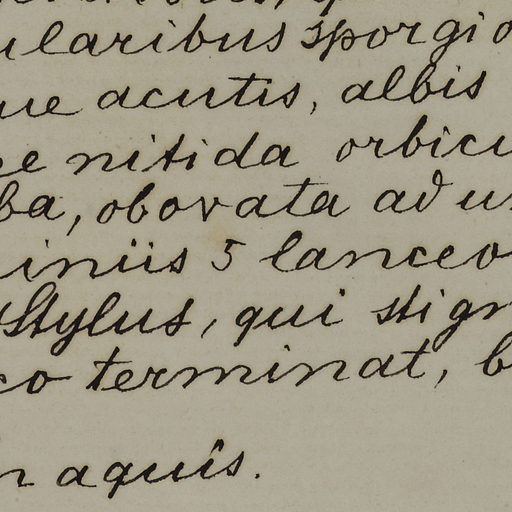 ularibus sporgio
ue acutis, albis
e nitida orbicu
ba, obovata ad u
iniis 5 lanceo
Stylus, qui stig
co terminat, b
n aquis.